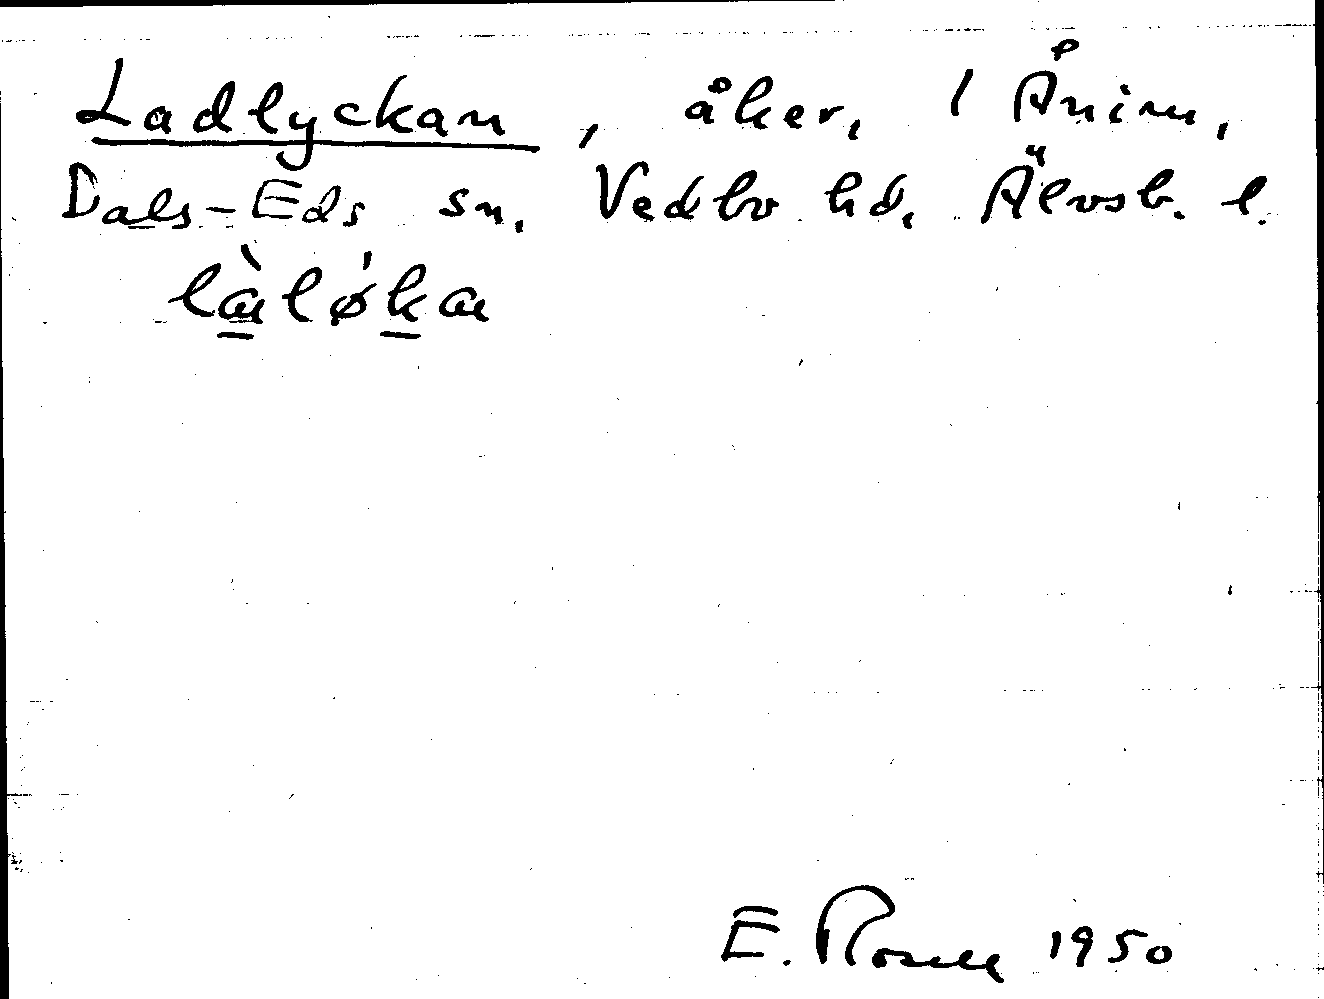 Ladlyckan, åker, 1 Ånim,
Dals-Eds sn, Vedbo hd, Älvsb. l.
là̱løḵ́a
E. Rosell 1950